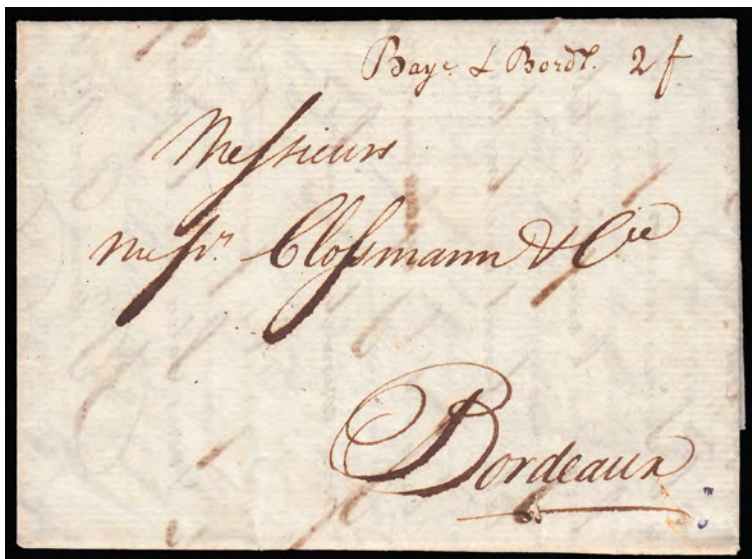 Baye. & Bordx. 2f
Messieurs
Messrs. Clossmann & Cie
Bordeaux